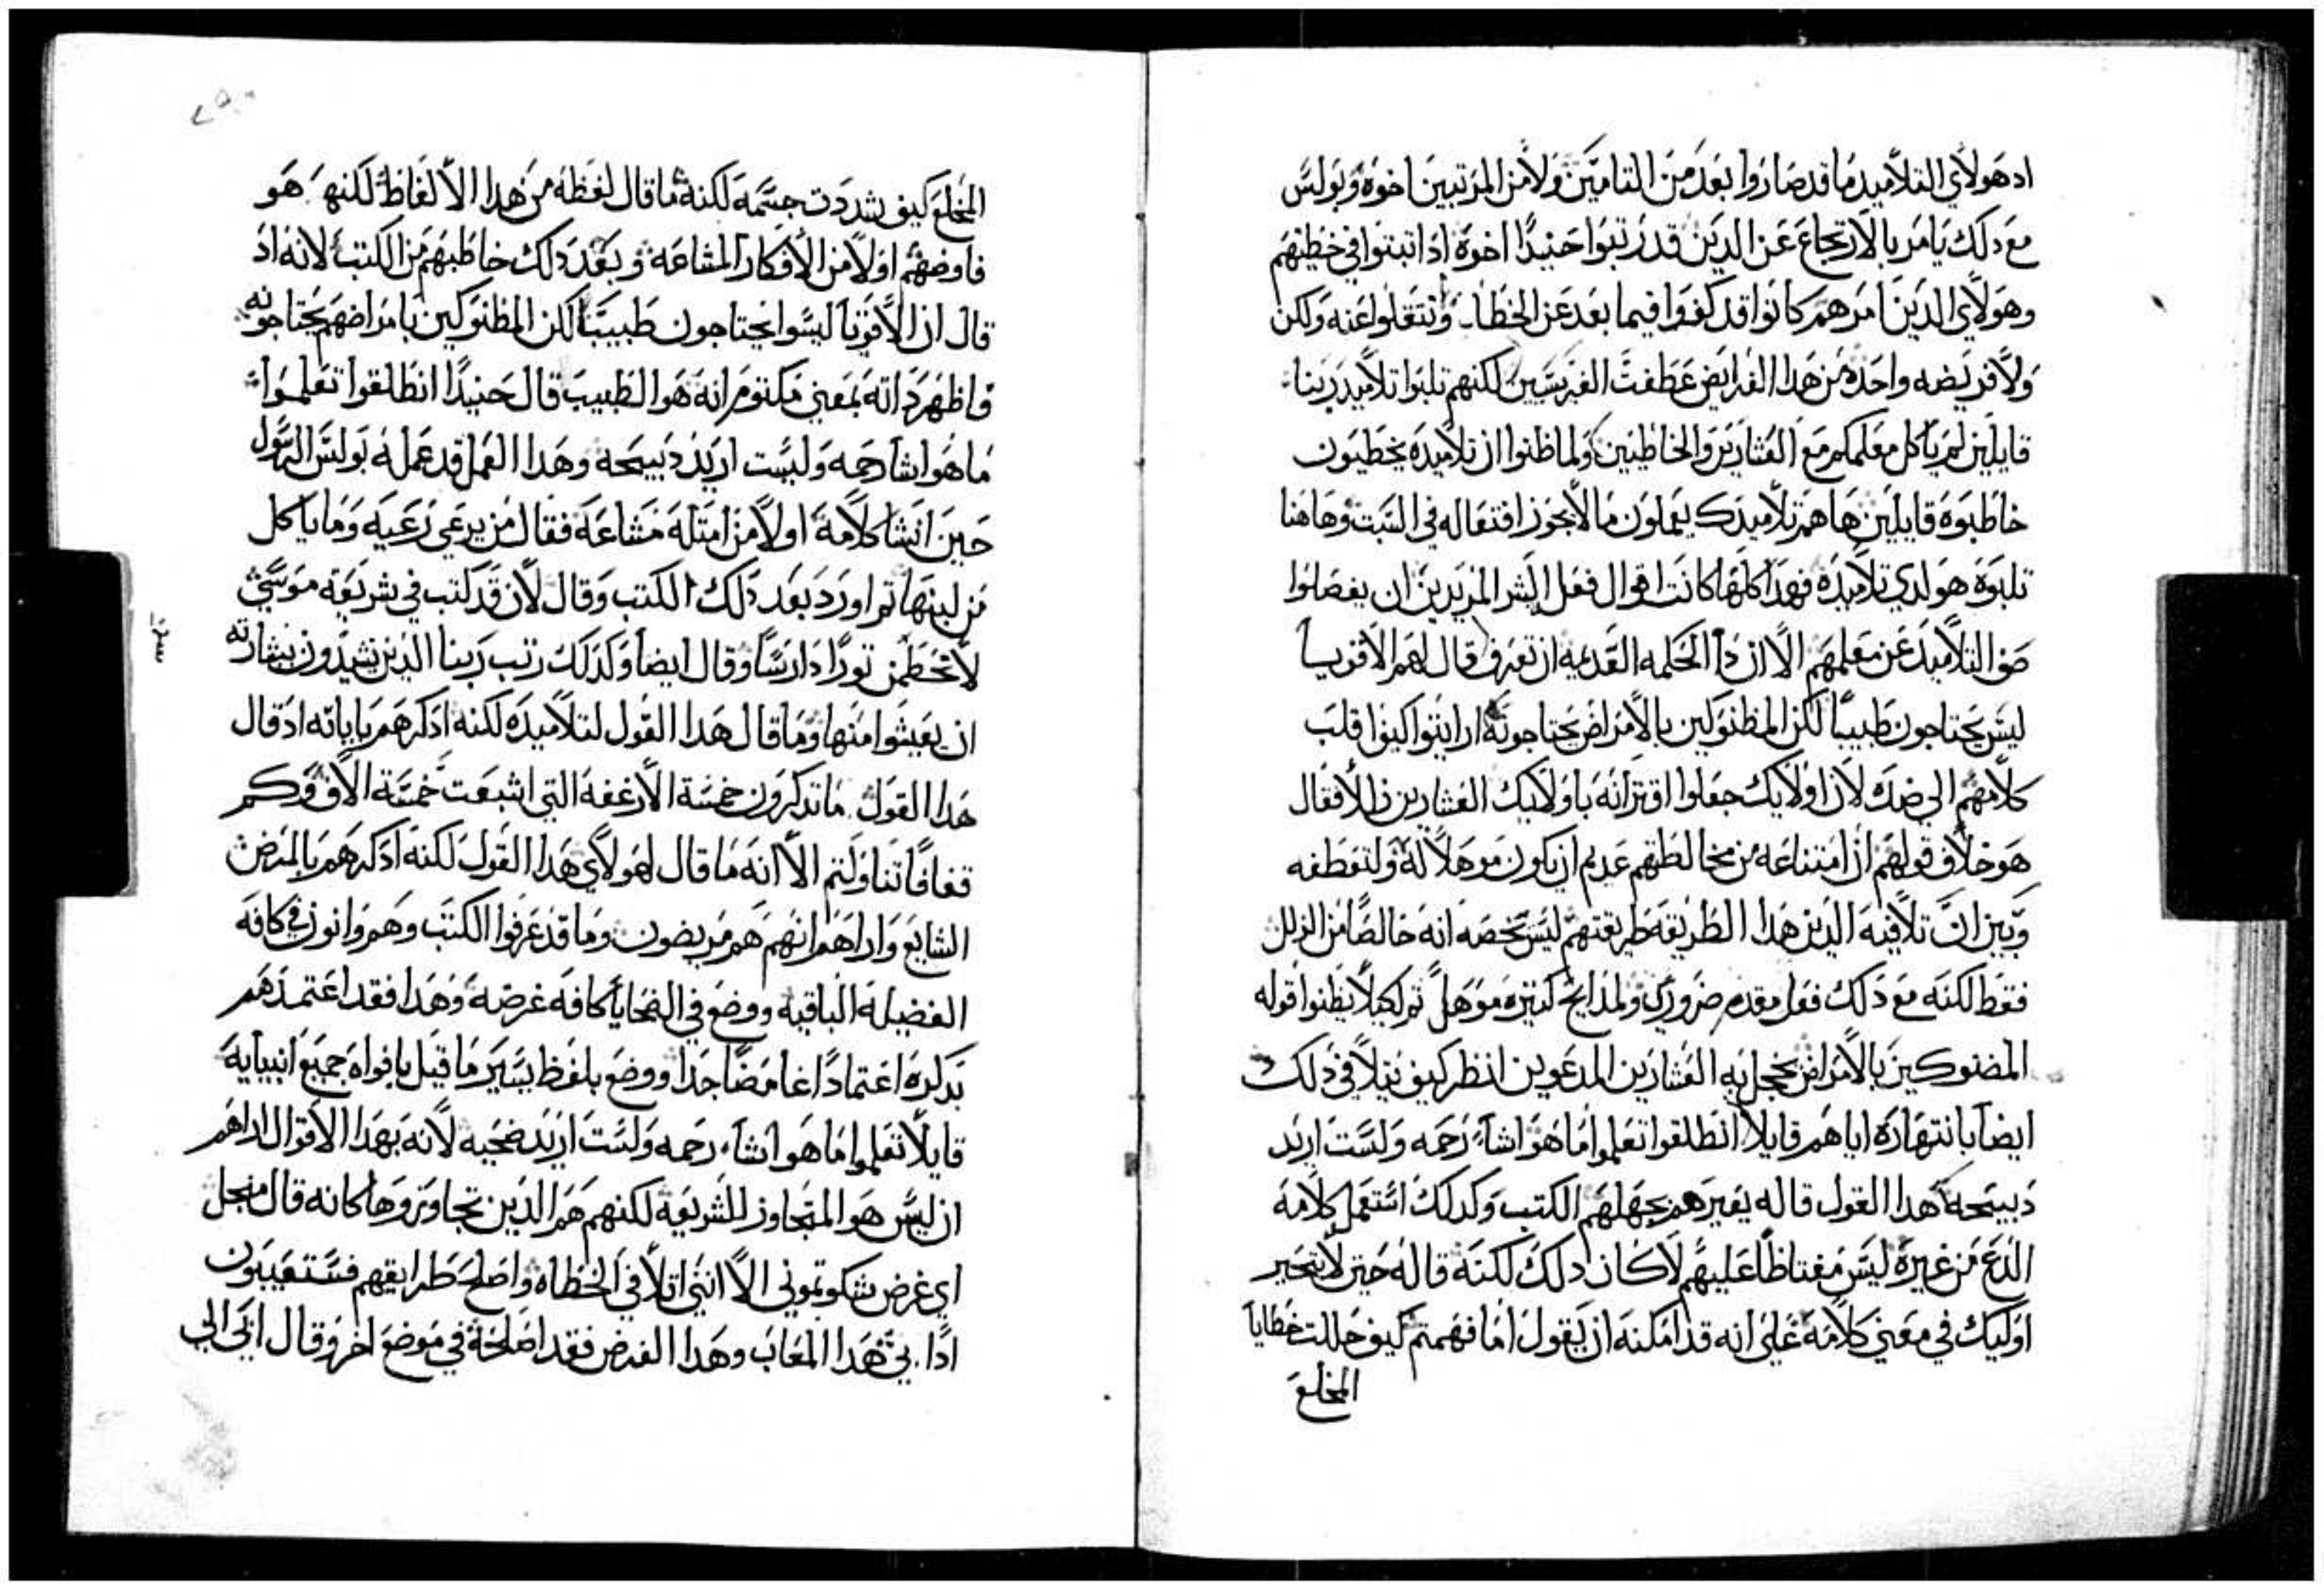 اد هولاي التلاميد ما قد صاروا بعد من التامين ولا من المرتبين اخوه وبولس
مع دلك يامر بالارتجاع عن الدين قد رتبوا حنيدا اخوة ادا تبتوا في خطيتهم
وهولاي الدين امرهم كانوا قد كفوا فيما بعد عن الخطا وانتقلوا عنه ولكن
ولا فريضه واحده من هدا الفرايض عطفت الفريسين لكنهم تلبوا تلاميد ربنا
قايلين لم ياكل معلمكم مع العشارين والخاطيين ولما ظنوا ان تلاميده يخطيون
خاطبوه قايلين ها هم تلاميدك يعملون ما لا يجوز افتعاله في السبت وهاهنا
تلبوة هو لدي تلاميده فهدا كلها كانت اقوال فعل البشر المريدين ان يفصلوا
صف التلاميد عن معلمهم الا ان دا الحكمه القديمه ان تعرف قال لهم الاقويا
ليس يحتاجون طبيبا لكن المظنوكين بالامراض يحتاجونه ارايتوا كيف قلب
كلامهم الي ضدك لان اولايك جعلوا اقترانه باولايك العشارين زللا فقال
هو خلاف قولهم ان امتناعه من مخالطتهم عديم ان يكون موهلا له ولتعطفه
وبين ان تلافيه الدين هدا الطريقه طريقتهم ليس يخصه انه خالصا من الزلل
فقط لكنه مع دلك فعل مقدم ضروري ولمدايح كتيره موهل تم لكيلا يظنوا قوله
المضنوكين بالامراض يخجل به العشارين المدعوين انظر كيف يتلافي دلك
ايضا بانتهاره اياهم قايلا انطلقوا تعلموا ما هو اشا رحمه ولست اريد
دبيحة هدا القول قاله يعيرهم بجهلهم الكتب وكدلك استعمل كلامه
اللدع من غيره ليس مغتاظا عليهم لا كان دلك لكنه قاله حتي لا يتحير
اوليك في معني كلامه علي انه قد امكنه ان يقول اما فهمتم كيف حللت خطايا
المخلع
المخلع كيف شددت جسمه لكنه ما قال لفظه من هدا الالفاظ لكنه هو
فاوضهم اولا من الافكار المشاعه وبعد دلك خاطبهم من الكتب لانه اد
قال ان الاقويا ليسوا يحتاجون طبيبا لكن المظنوكين بامراضهم يحتاجونه
واظهر داته بمعني مكتوم انه هو الطبيب قال حنيدا انطلقوا تعلموا
ما هو اشا رحمه وليست اريد دبيحه وهدا العمل قد عمله بولس الرسول
حين انشا كلامه اولا من امتله مشاعه فقال من يرعي رعيه وما ياكل
من لبنها تم اورد بعد دلك الكتب وقال لان قد كتب في شريعة موسي
لا تخطمن تورا دارسا وقال ايضا وكدلك رتب ربنا الدين يشيدون بشارته
ان يعيشوا منها وما قال هدا القول لتلاميده لكنه ادكرهم باياته اد قال
هدا القول ما تدكرون خمسة الارغفه التي اشبعت خمسة الاف وكم
قفافا تناولتم الا انه ما قال لهولاي هدا القول لكنه ادكرهم بالمرض
الشايع واراهم انهم هم مريضون وما قد عرفوا الكتب وهم وانون في كافه
الفضيله الباقيه ووضع في الضحايا كافه غرضه وهدا فقد اعتمدهم
بدكره اعتمادا غامضا جدا ووضع بلفظ يسير ما قيل بافواه جميع انبيايه
قايلا تعلموا ما هو اشاء رحمه ولست اريد ضحيه لانه بهدا الاقوال اراهم
ان ليس هو المتجاوز للشريعة لكنهم هم الدين تجاوزوها كانه قال من اجل
اي غرض شكوتموني الا انني اتلافي الخطاه واصلح طرايقهم فستعيبون
ادا بي هدا المعاب وهدا الغرض فقد اصلحه في موضع اخر وقال ابي الي